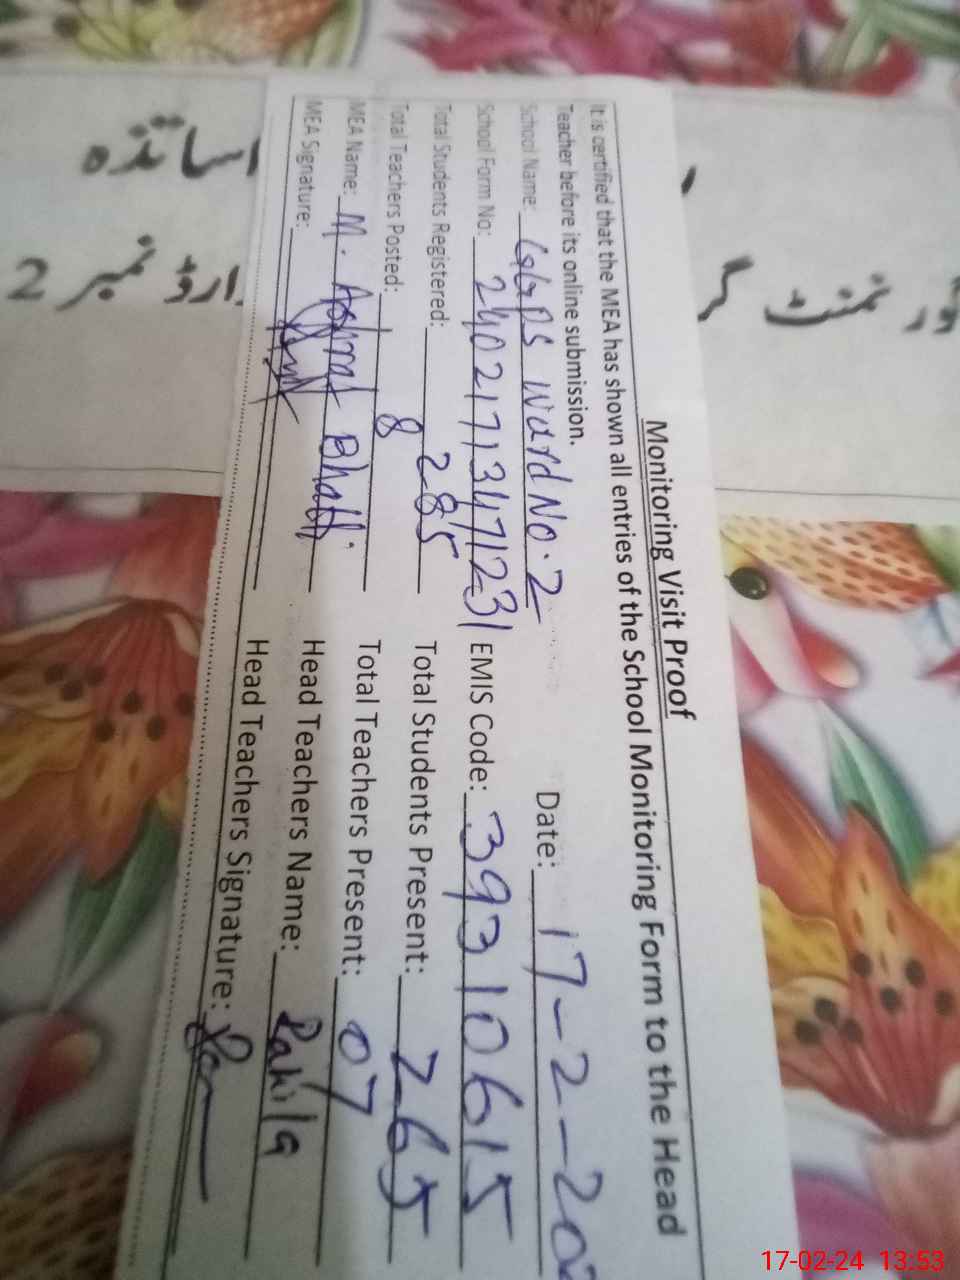 Monitoring Visit Proof
It is certified that the MEA has shown all entries of the School Monitoring Form to the Head
Teacher before its online submission.
School Name: GGPS Ward No. 2 Date: 17-2-20
School Form No: 2402171347123 EMIS Code: 39310615
Total Students Registered: 285 Total Students Present: 265
Total Teachers Posted: 8 Total Teachers Present: 07
MEA Name: M. Ashraf Bhatti Head Teachers Name: Rahila
MEA Signature: Head Teachers Signature:
اساتذہ
وارڈ نمبر 2
17-02-24 13:53